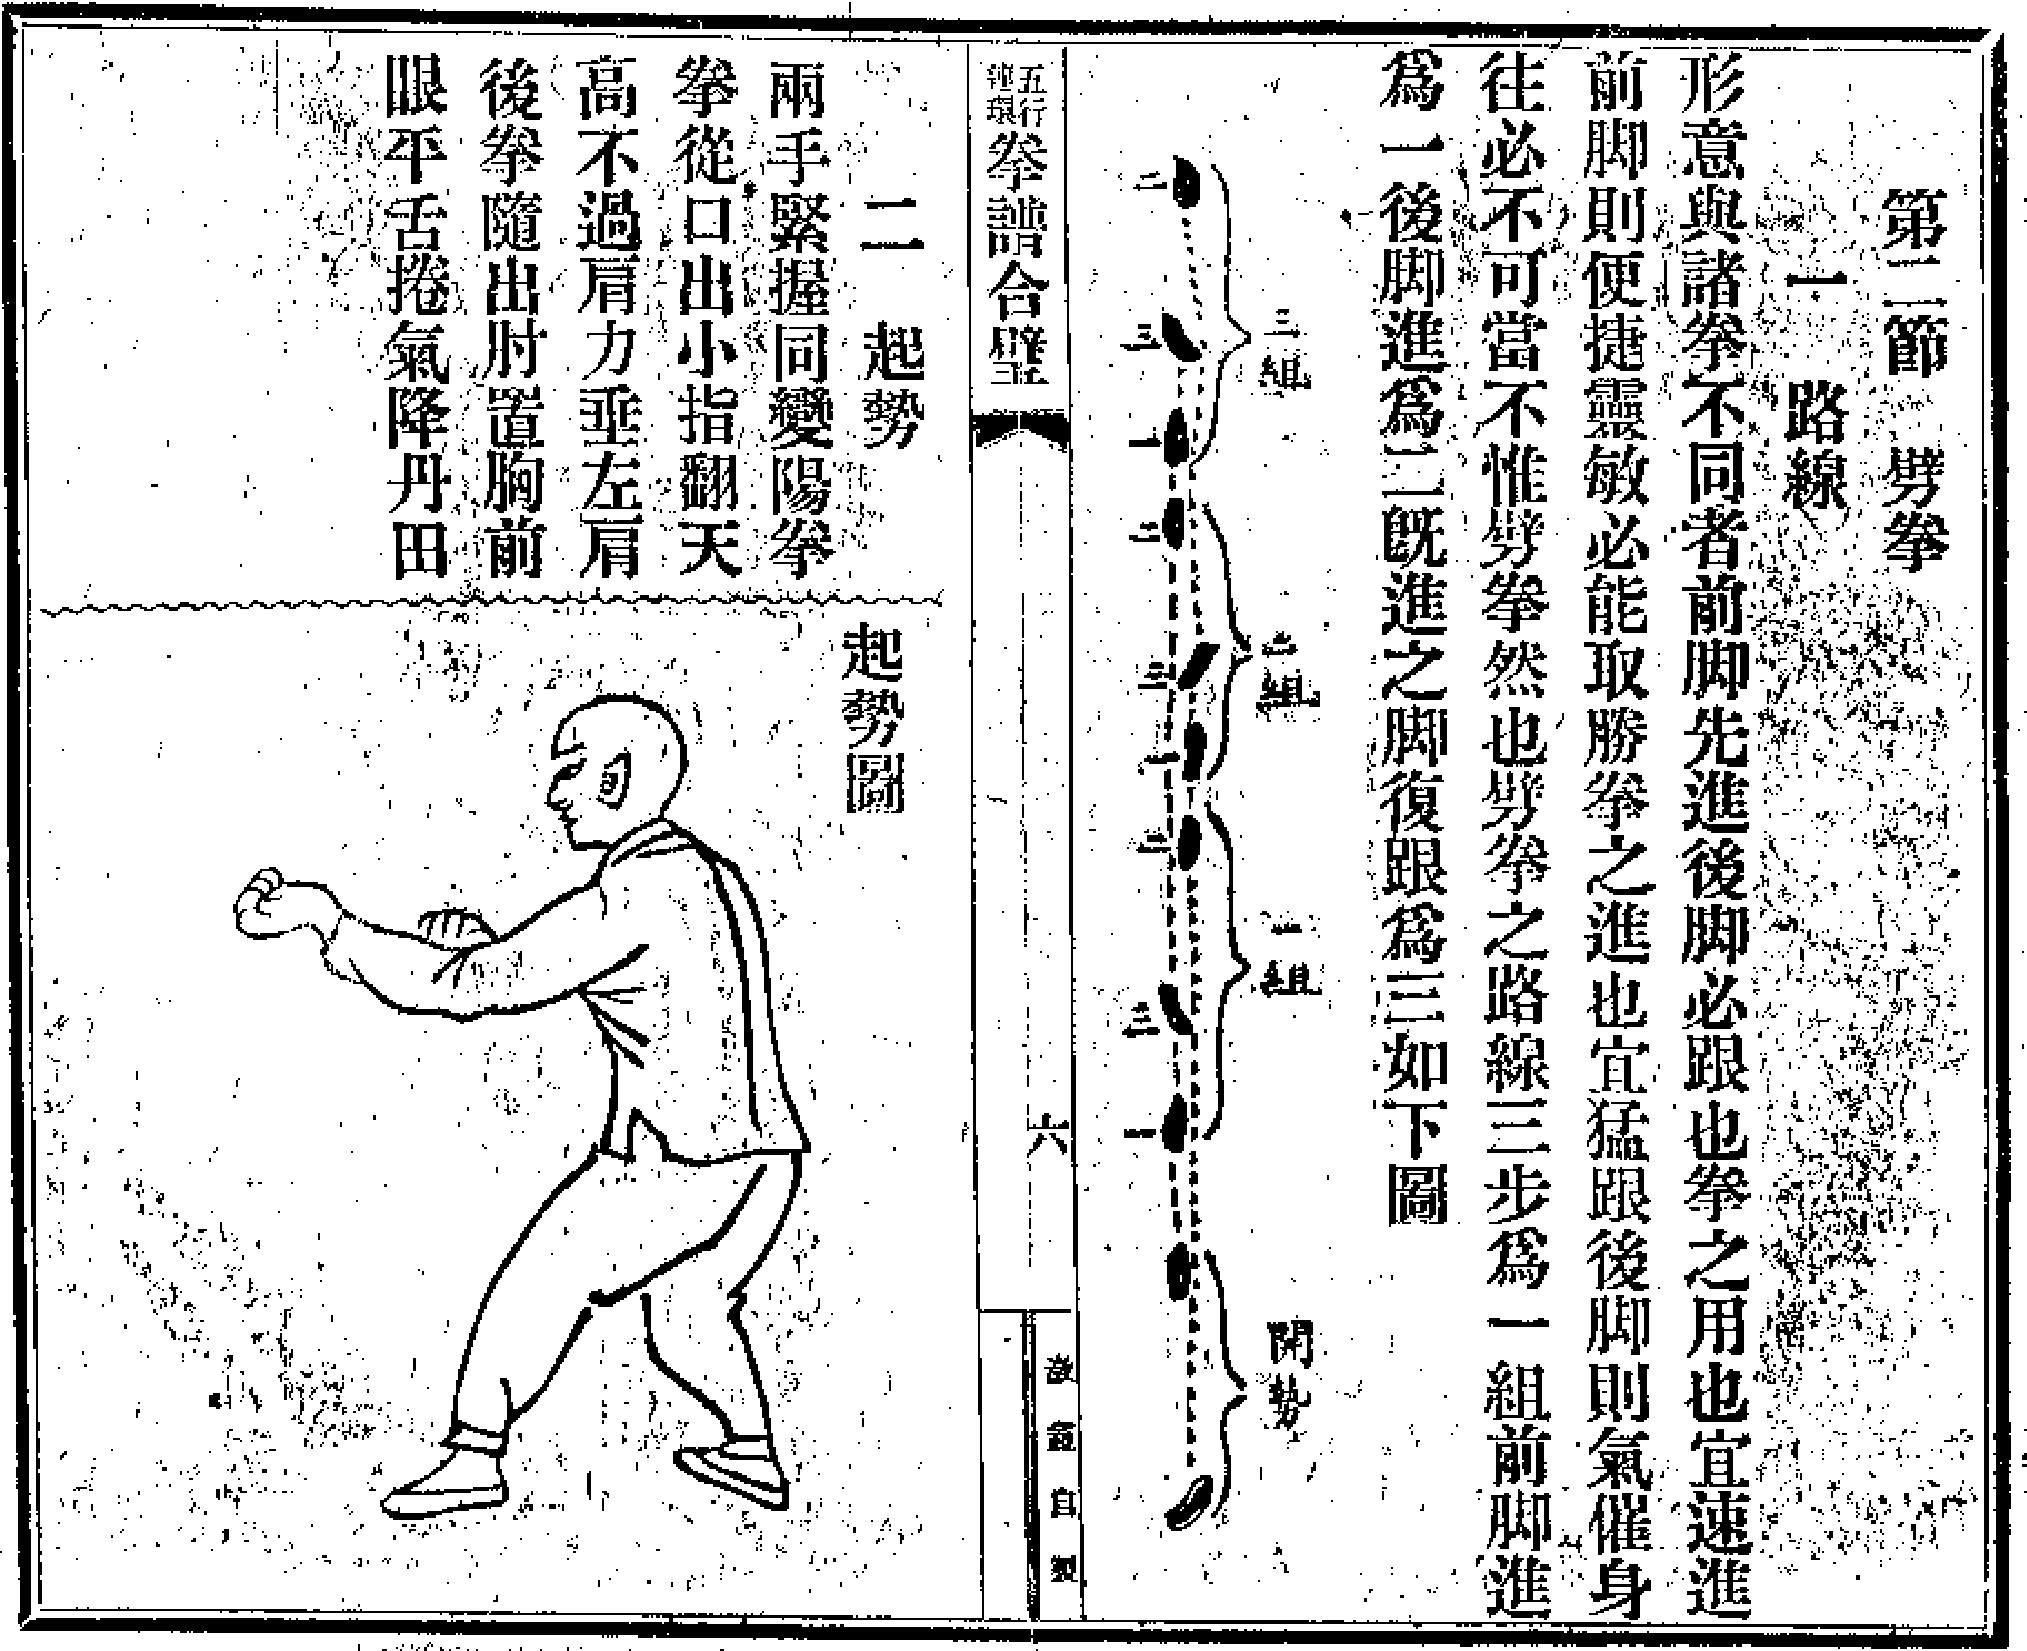 第二節 劈拳
一 路線
形意與諸拳不同者前脚先進後脚必跟也拳之用也宜速進
前脚則便捷靈敏必能取勝拳之進也宜猛跟後脚則氣催身
往必不可當不惟劈拳然也劈拳之路線三步爲一組前脚進
爲一後脚進爲二旣進之脚復跟爲三如下圖
三組
二組
一組
開勢
二
三
一
二
三
一
二
三
一
五行
連環
拳譜合璧
六
二 起勢
兩手緊握同變陽拳
拳從口出小指翻天
高不過肩力垂左肩
後拳隨出肘置胸前
眼平舌捲氣降丹田
起勢圖